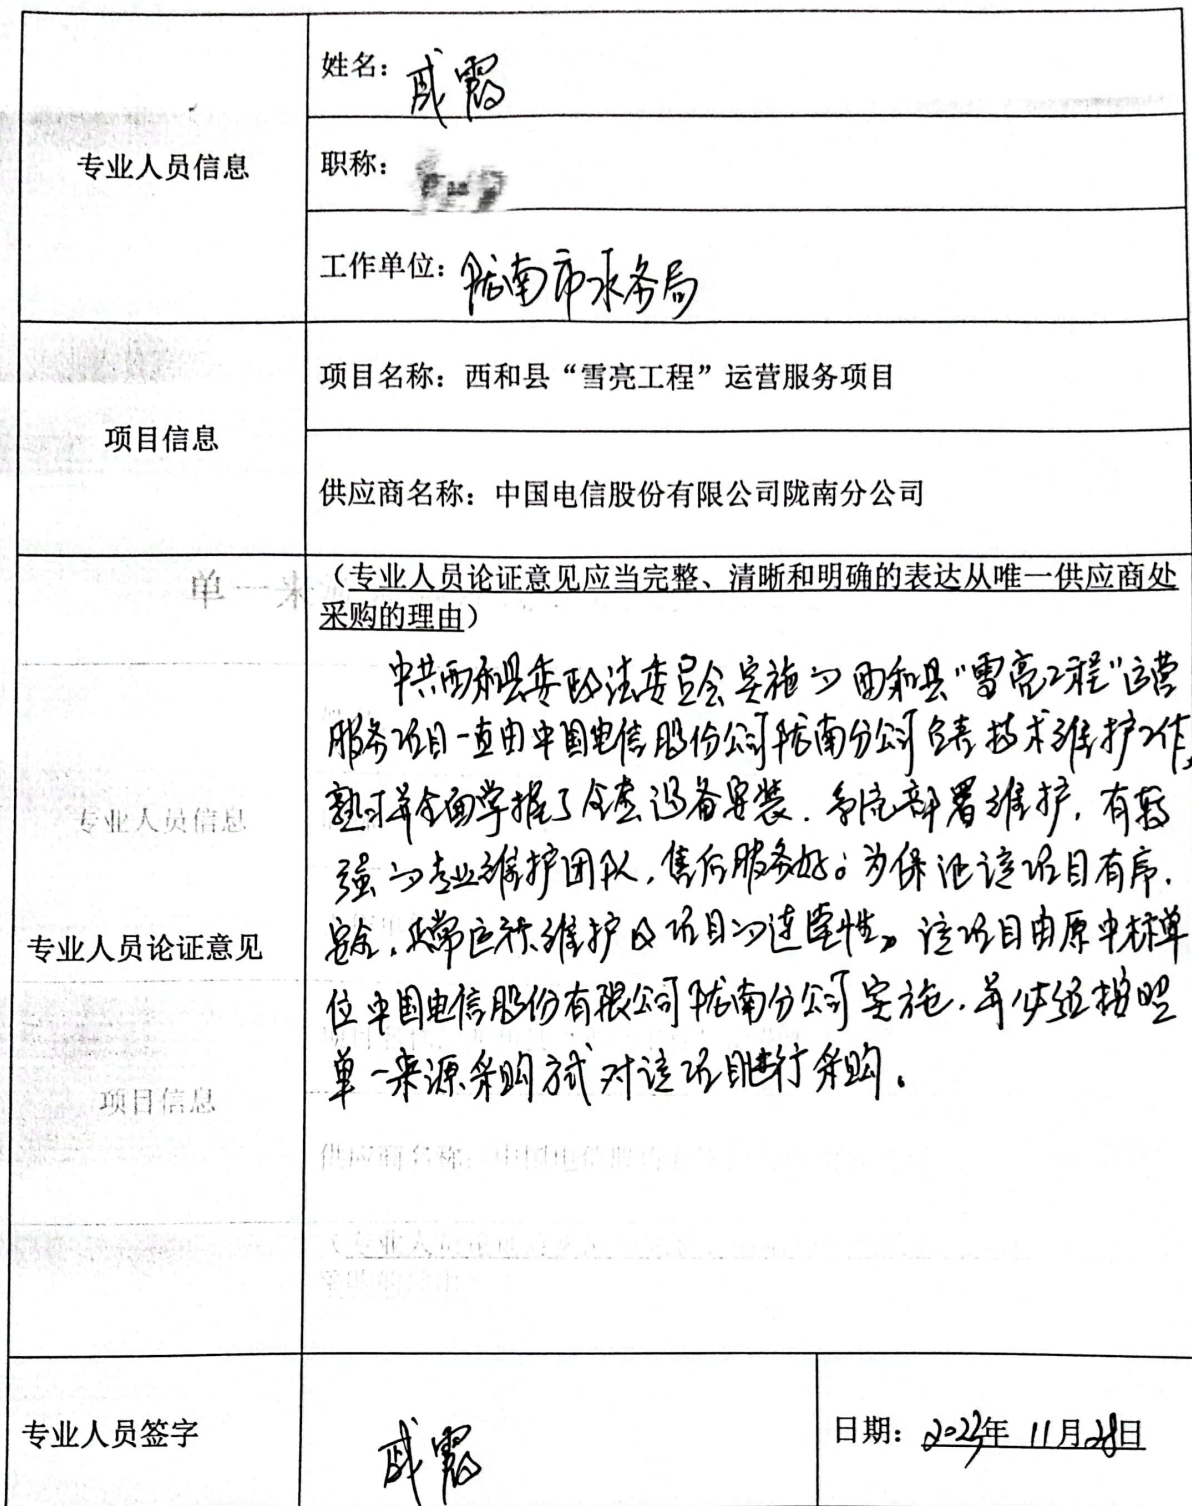 专业人员信息
姓名：戚霞
职称：
工作单位：陇南市水务局
项目信息
项目名称：西和县“雪亮工程”运营服务项目
供应商名称：中国电信股份有限公司陇南分公司
专业人员论证意见
（专业人员论证意见应当完整、清晰和明确的表达从唯一供应商处
采购的理由）
中共西和县委政法委员会实施的西和县“雪亮工程”运营
服务项目一直由中国电信股份公司陇南分公司负责技术维护工作，
熟并全面掌握了设备安装、系统部署维护，有较
强的专业维护团队，售后服务好。为保证该项目有序、
安全、正常运行维护及项目的连续性。该项目由原中标单
位中国电信股份有限公司陇南分公司实施，并按照
单一来源采购方式对该项目进行采购。
专业人员签字
戚霞
日期：2023年11月28日
单一来
专业人员信息
项目信息
供应商名称：中国电信股